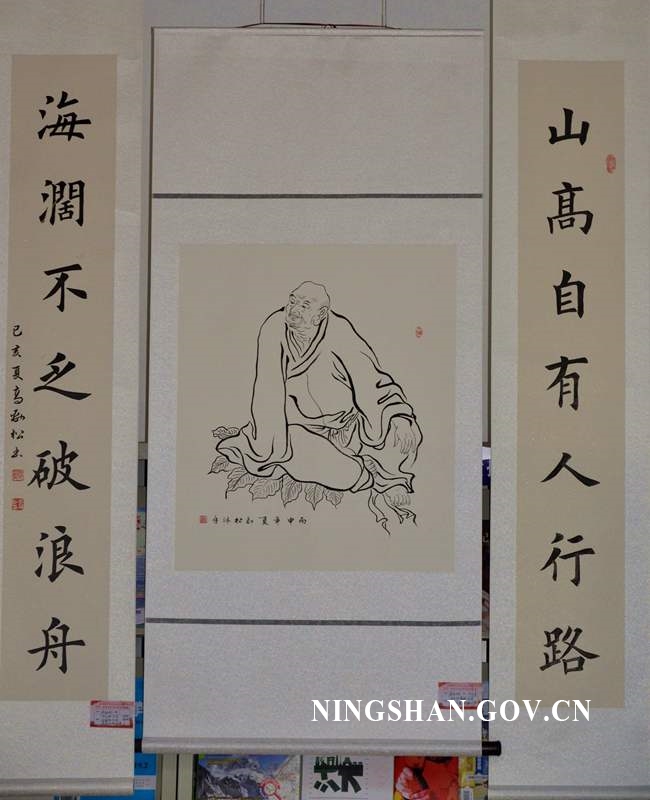 山高自有人行路
海濶不乏破浪舟
己亥夏高和松书
丙申年夏和松沐手
NINGSHAN.GOV.CN